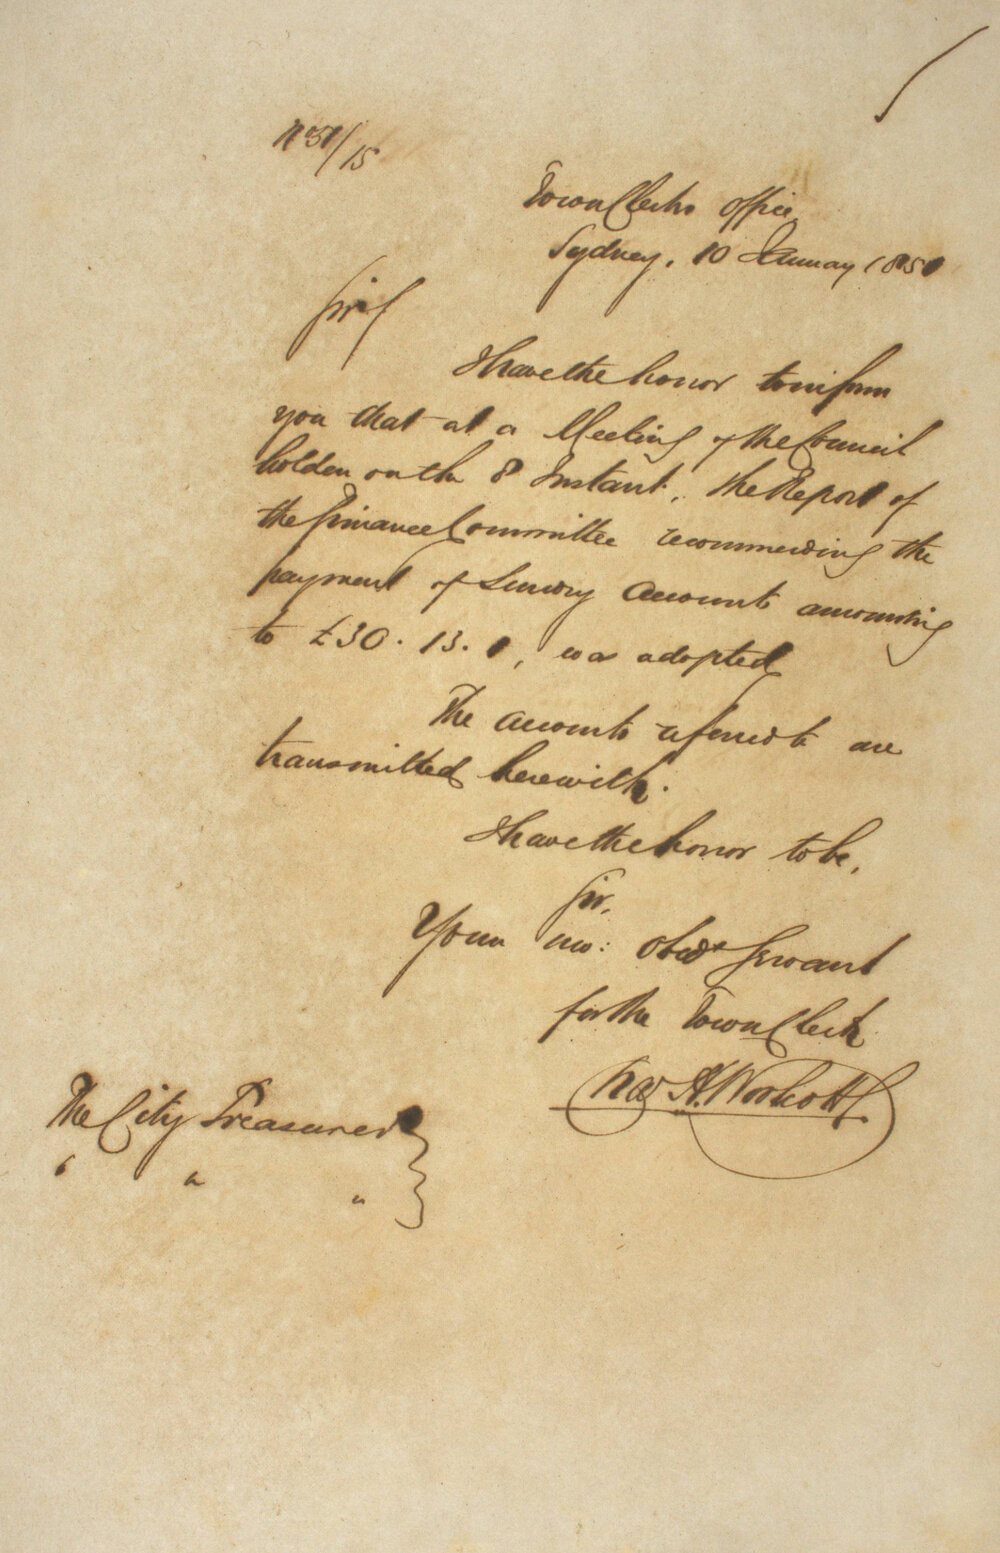 No 51/15
Town Clerks Office,
Sydney, 10 January 1851
Sir/
I have the honor to inform
you that at a Meeting of the Council
holden on the 8 Instant, the Report of
the Finance Committee recommending the
payment of Sundry Accounts amounting
to £30.13.1, was adopted
The Accounts referred to are
transmitted herewith.
I have the honor to be,
Sir,
Your mo: Obedt Servant
for the Town Clerk
Chas H. Woolcott
The City Treasurer }
" " "